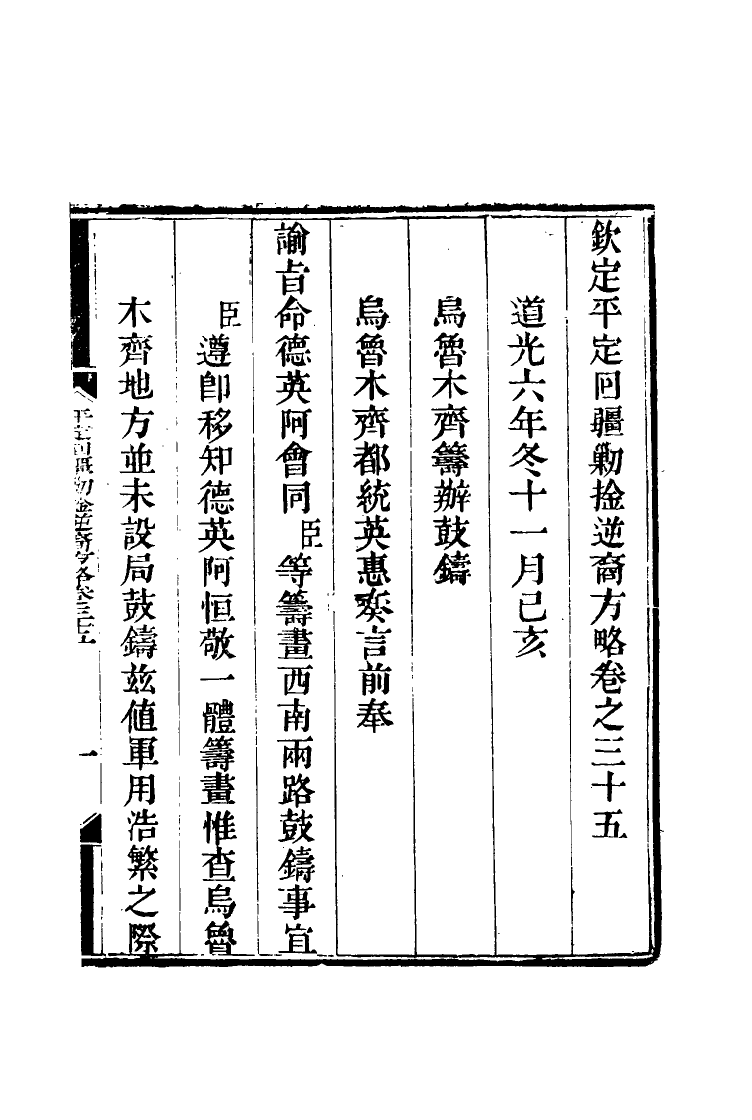 欽定平定回疆勦捦逆裔方略卷之三十五
道光六年冬十一月己亥
烏魯木齊籌辦鼓鑄
烏魯木齊都統英惠奏言前奉
諭旨命德英阿會同臣等籌畫西南兩路鼓鑄事宜
臣遵卽移知德英阿恒敬一體籌畫惟查烏魯
木齊地方並未設局鼓鑄玆値軍用浩繁之際
平定回疆勦捦逆裔方略卷三十五
一